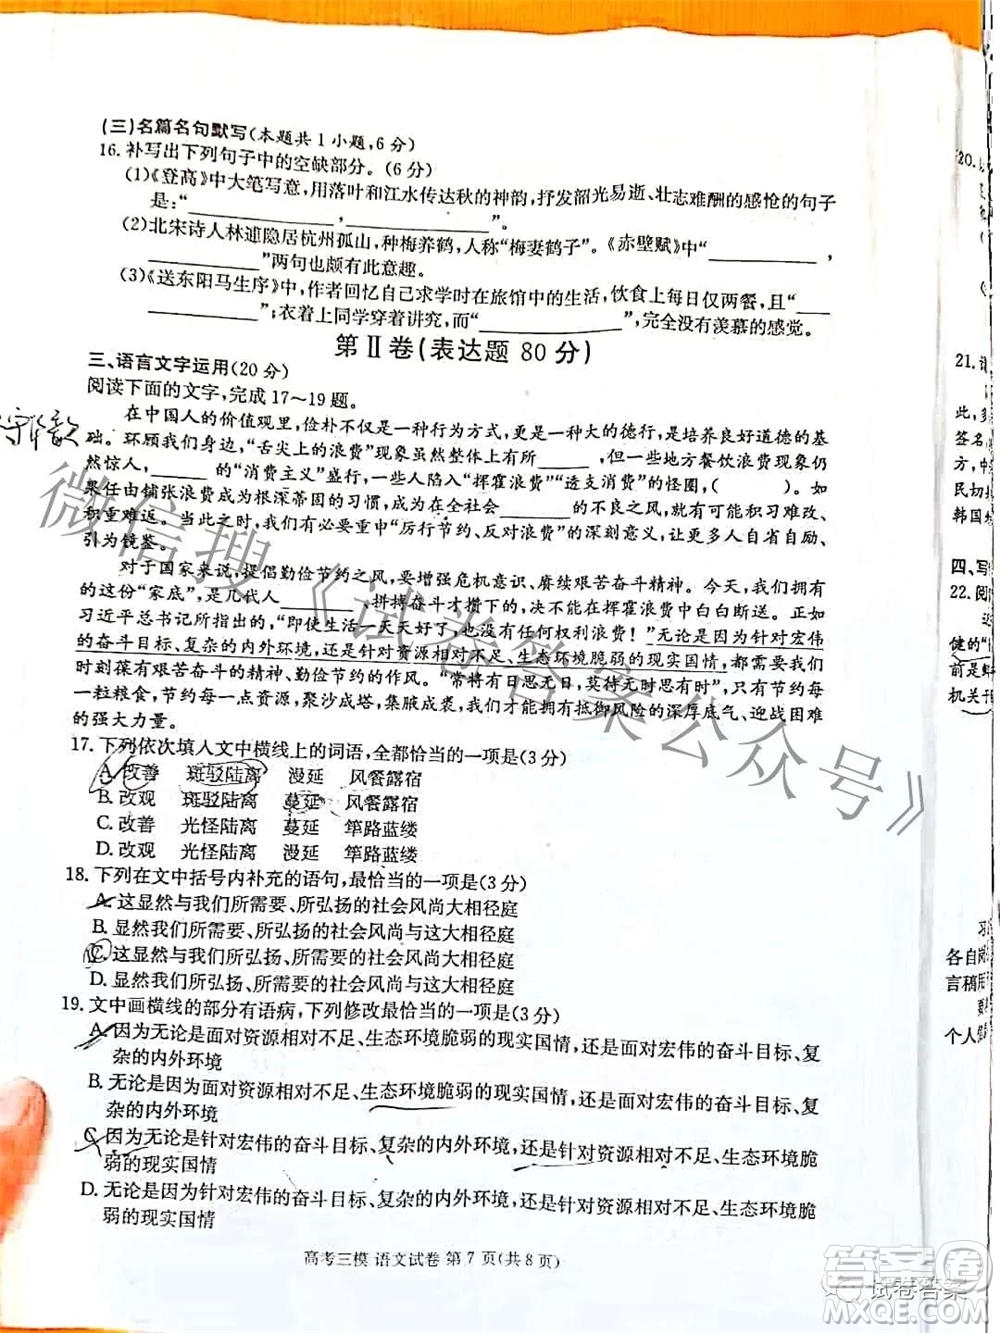 (三)名篇名句默写(本题共1小题,6分)
16.补写出下列句子中的空缺部分。(6分)
(1)《登高》中大笔写意,用落叶和江水传达秋的神韵,抒发韶光易逝、壮志难酬的感怆的句子
是:“__________,__________”。
(2)北宋诗人林逋隐居杭州孤山,种梅养鹤,人称“梅妻鹤子”。《赤壁赋》中“__________,
__________”两句也颇有此意趣。
(3)《送东阳马生序》中,作者回忆自己求学时在旅馆中的生活,饮食上每日仅两餐,且“____
__________”;衣着上同学穿着讲究,而“__________”,完全没有羡慕的感觉。
第Ⅱ卷(表达题 80分)
三、语言文字运用(20分)
阅读下面的文字,完成17~19题。
在中国人的价值观里,俭朴不仅是一种行为方式,更是一种大的德行,是培养良好道德的基
础。环顾我们身边,“舌尖上的浪费”现象虽然整体上有所______,但一些地方餐饮浪费现象仍
然惊人,______的“消费主义”盛行,一些人陷入“挥霍浪费”“透支消费”的怪圈,(  )。如
果任由铺张浪费成为根深蒂固的习惯,成为在全社会______的不良之风,就可能积习难改、
积重难返。当此之时,我们有必要重申“厉行节约、反对浪费”的深刻意义,让更多人自省自励、
引为镜鉴。
对于国家来说,提倡勤俭节约之风,要增强危机意识、赓续艰苦奋斗精神。今天,我们
的这份“家底”,是几代人______、拼搏奋斗才攒下的,不应该在挥霍浪费中白白断送。正如
习近平总书记所指出的:“即使生活一天天好了,也没有任何权利浪费!”无论是因为针对宏伟
的奋斗目标、复杂的内外环境,还是针对资源相对不足、生态环境脆弱的现实国情,都需要我们
时刻葆有艰苦奋斗的精神、勤俭节约的作风。“常将有日思无日,莫待无时思有时”,只有珍惜每
一粒粮食,节约每一份资源,聚沙成塔,集腋成裘,才能铸就抵御风险的深厚底气、迎战困难
的强大力量。
17.下列依次填入文中横线上的词语,全都恰当的一项是(3分)
A.改善 斑驳陆离 漫延 风餐露宿
B.改观 斑驳陆离 蔓延 风餐露宿
C.改善 光怪陆离 蔓延 筚路蓝缕
D.改观 光怪陆离 漫延 筚路蓝缕
18.下列在文中括号内补充的语句,最恰当的一项是(3分)
A.这显然与我们所需要、所弘扬的社会风尚大相径庭
B.显然我们所需要、所弘扬的社会风尚与这大相径庭
C.这显然与我们所弘扬、所需要的社会风尚大相径庭
D.显然我们所弘扬、所需要的社会风尚与这大相径庭
19.文中画横线的部分有语病,下列修改最恰当的一项是(3分)
A.因为无论是面对资源相对不足、生态环境脆弱的现实国情,还是面对宏伟的奋斗目标、复
杂的内外环境
B.无论是因为面对资源相对不足、生态环境脆弱的现实国情,还是面对宏伟的奋斗目标、复
杂的内外环境
C.因为无论是针对宏伟的奋斗目标、复杂的内外环境,还是针对资源相对不足、生态环境脆
弱的现实国情
D.无论是因为针对宏伟的奋斗目标、复杂的内外环境,还是针对资源相对不足、生态环境脆
弱的现实国情
高考三模 语文试卷 第7页(共8页)
微信搜《试卷答案公众号》
20.
21.
此,多
签名
方,中
民切
韩国
四、写
22.阅
健的“
前是
机关干
各自
言稿
个人
试卷答案
MXQE.COM